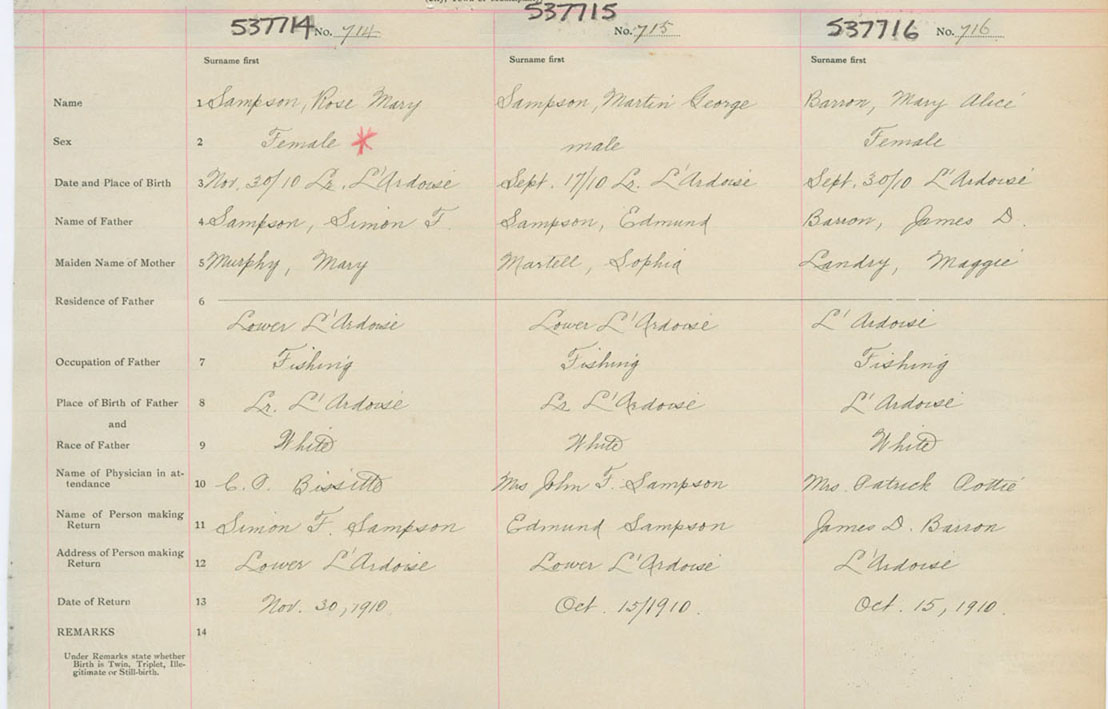 537714 No. 714 537715 No. 715 537716 No. 716
Surname first Surname first Surname first
Name 1 Sampson, Rose Mary Sampson, Martin George Barron, Mary Alice
Sex 2 Female * male Female
Date and Place of Birth 3 Nov. 30/10 Lr. L'Ardoise Sept. 17/10 Lr. L'Ardoise Sept. 30/10 L'Ardoise
Name of Father 4 Sampson, Simon F. Sampson, Edmund Barron, James D.
Maiden Name of Mother 5 Murphy, Mary Martell, Sophia Landry, Maggie
Residence of Father 6
Lower L'Ardoise Lower L'Ardoise L'Ardoise
Occupation of Father 7 Fishing Fishing Fishing
Place of Birth of Father 8 Lr. L'Ardoise Lr. L'Ardoise L'Ardoise
and
Race of Father 9 White White White
Name of Physician in at-
tendance 10 C. P. Bissitte Mrs John F. Sampson Mrs. Patrick Pottie
Name of Person making
Return 11 Simon F. Sampson Edmund Sampson James D. Barron
Address of Person making
Return 12 Lower L'Ardoise Lower L'Ardoise L'Ardoise
Date of Return 13 Nov. 30, 1910. Oct. 15/1910. Oct. 15, 1910.
REMARKS 14
Under Remarks state whether
Birth is Twin, Triplet, Ille-
gitimate or Still-birth.